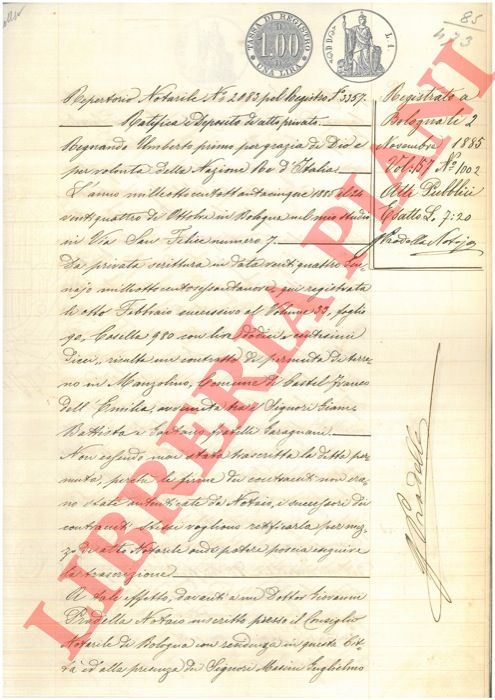 85
473
TASSA DI REGISTRO
1.00
UNA LIRA
L. 1.
Repertorio Notarile N. 2083 pel Registro N. 3357.
Ratifica e Deposito d'atto privato.
Regnando Umberto primo per grazia di Dio e
per volontà della Nazione Re d'Italia.
L'anno milleottocentottantacinque 1885 il 24
ventiquattro di Ottobre in Bologna nel mio studio
in Via San Felice numero 7.
Da privata scrittura in data ventiquattro Gen=
najo milleottocentosessantanove, qui registrata
li otto Febbraio successivo al Volume 33, foglio
90, Casella 980 con lire dodici e centesimi
dieci, risulta un contratto di permuta di terre
no in Manzolino, Comune di Castel Franco
dell'Emilia, avvenuta tra i Signori Giam
Battista e fratelli Garagnani.
Non essendo mai stata trascritta la detta per
muta, perchè le firme dei contraenti non era
no state autenticate da Notaio, i successori dei
contraenti stessi vogliono ratificarla per mez
zo di atto Notarile onde potere poscia eseguire
la trascrizione.
A tale effetto, davanti a me Dottor Giovanni
Pradella Notaio inscritto presso il Consiglio
Notarile di Bologna con residenza in questa Cit
tà ed alla presenza dei Signori Masini Guglielmo
Registrato a
Bologna li 2
Novembre 1885
Vol: 151 N° 1002
Atti Pubblici
Esatto L. 7:20
Pradella Notajo
G. Pradella
LIBRERIA PIANI